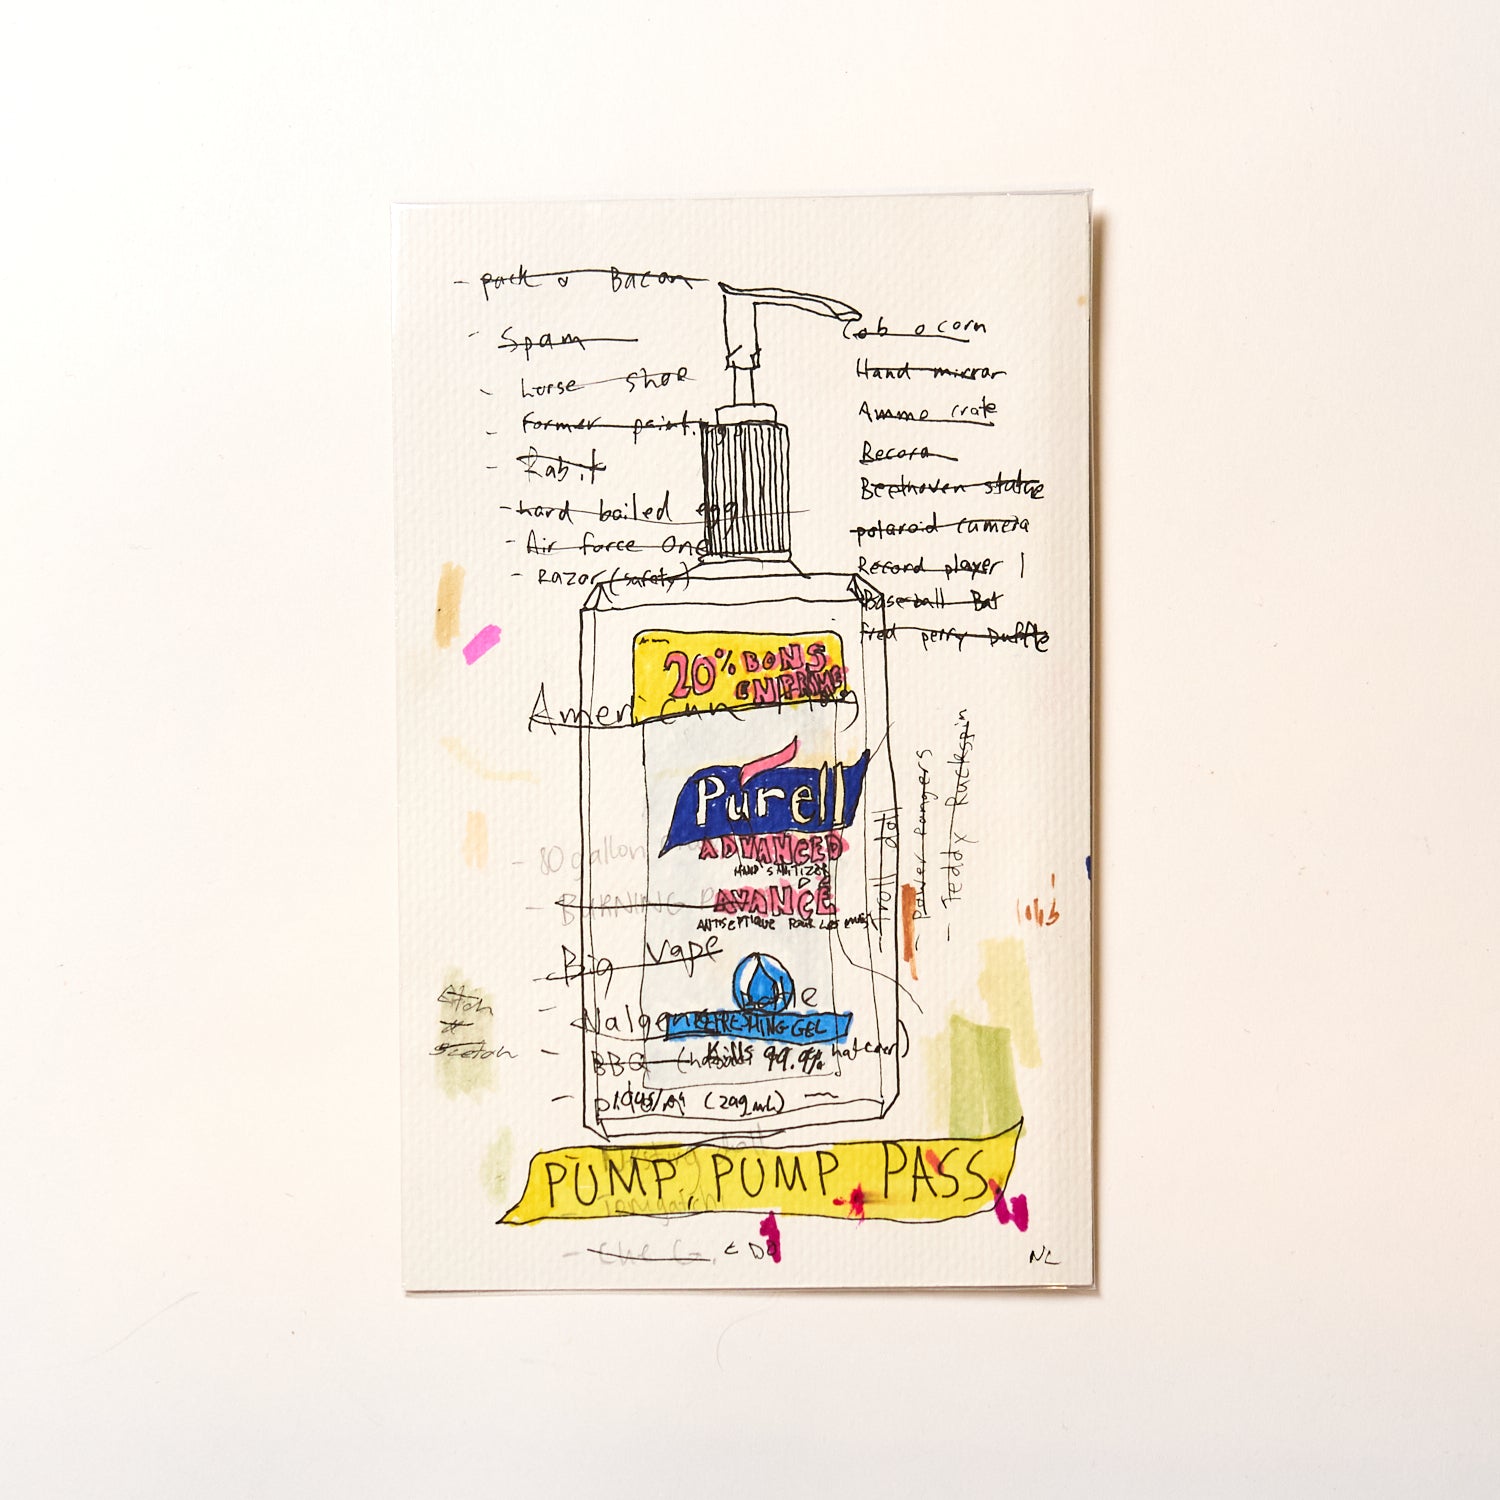 - pack o Bacon
- Spam
- horse shoe
- Former paint.
- Rabit
- hard boiled egg
- Air force One
- Razor (safety)
Cob o corn
Hand mirror
Ammo crate
Record
Beethoven statue
polaroid camera
Record player
Baseball Bat
fred perry Duffle
20% BONS
EN PRIME
American Flag
Purell
ADVANCED
HAND SANITIZER
DE
AVANCÉ
ANTISEPTIQUE POUR LES
- Troll doll
- power rangers
- Teddy Ruckspin
- 80 gallon
- BURNING
- Big vape
- Nalgene bottle
REFRESHING GEL
- BBQ
Kills 99.9%
Etch
a
Scetch
PUMP, PUMP PASS
- Che G.
NL